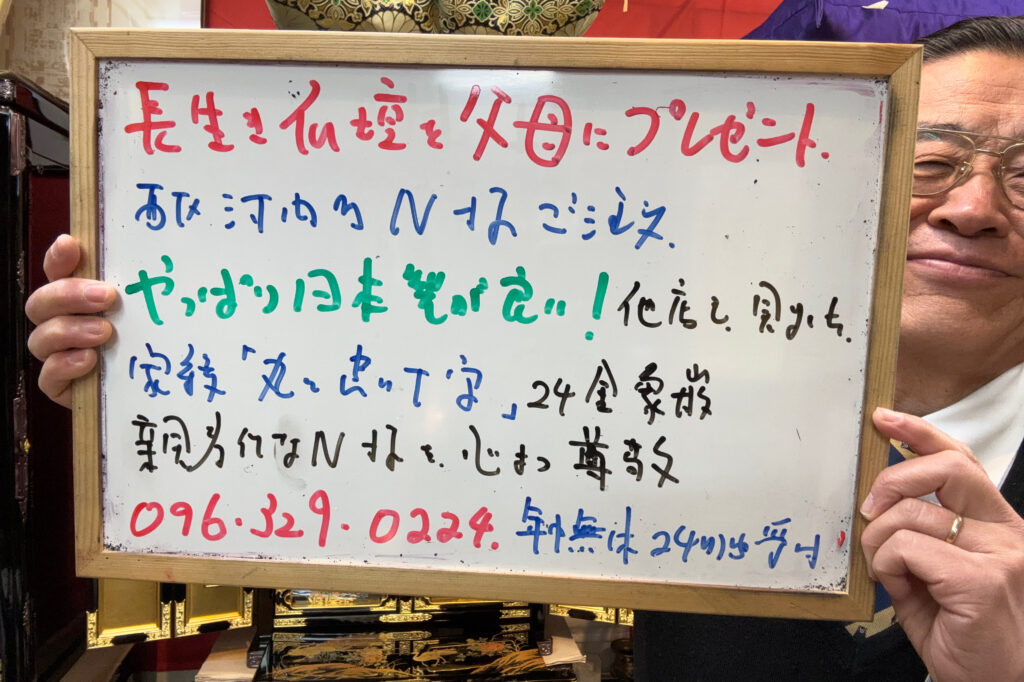 長生き仏壇を父母にプレゼント.
河内町N様ご注文.
やっぱり日本製が良い!他店も見ました.
家紋「丸に 字」24金象嵌
親孝行なN様を、心から尊敬
096.329.0224.年中無休24時間受付